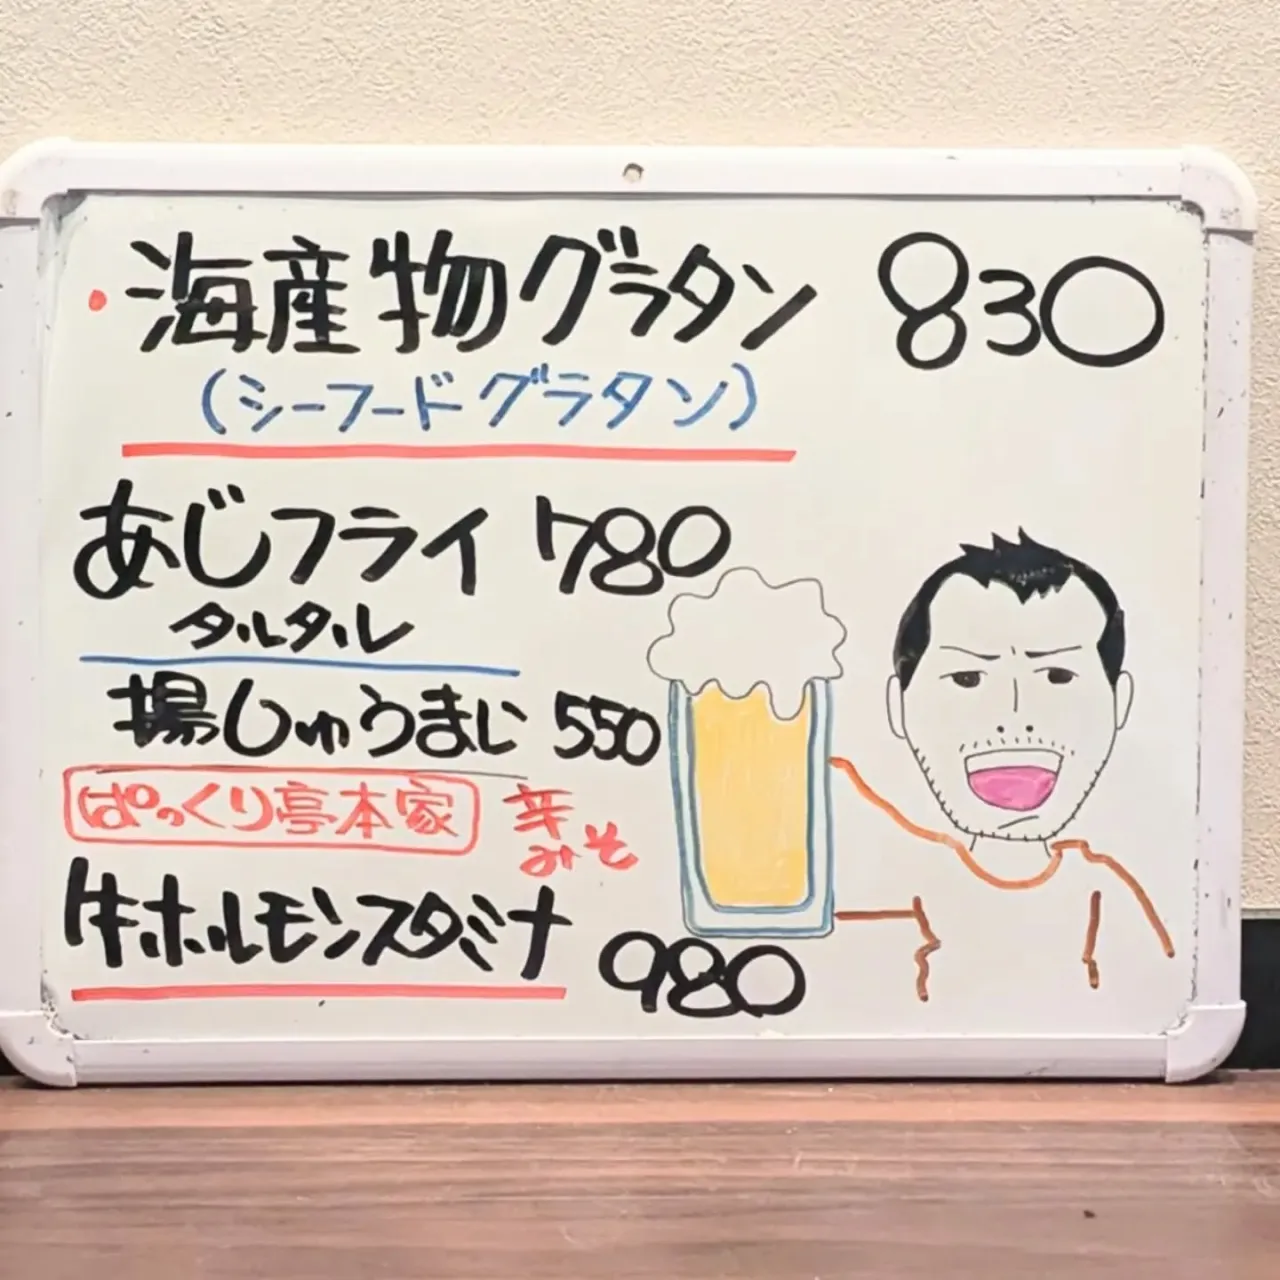 ・海産物グラタン 830
(シーフードグラタン)
あじフライ 780
タルタル
揚しゅうまい 550
ぱっくり亭本家 辛みそ
牛ホルモンスタミナ 980